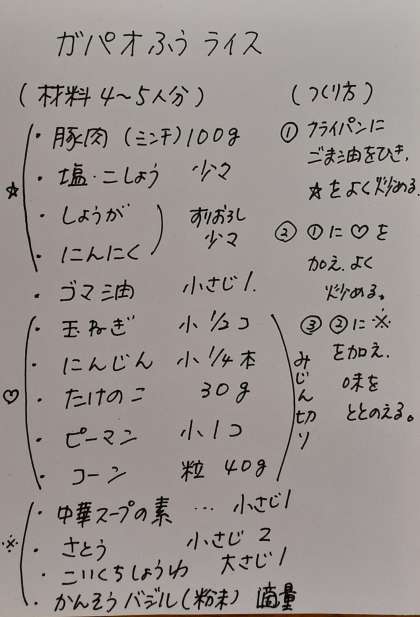 ガパオふう ライス
(材料 4〜5人分)
☆
・豚肉 (ミンチ) 100g
・塩・こしょう 少々
・しょうが
・にんにく
すりおろし
少々
・ゴマ油 小さじ1.
♡
・玉ねぎ 小 1/2コ
・にんじん 小 1/4本
・たけのこ 30g
・ピーマン 小1コ
・コーン 粒 40g
みじん切り
※
・中華スープの素 … 小さじ1
・さとう 小さじ2
・こいくちしょうゆ 大さじ1
・かんそうバジル(粉末) 適量
(つくり方)
① フライパンに
ごま油をひき、
☆をよく炒める。
② ①に♡を
加え、よく
炒める。
③ ②に※
を加え、
味を
ととのえる。